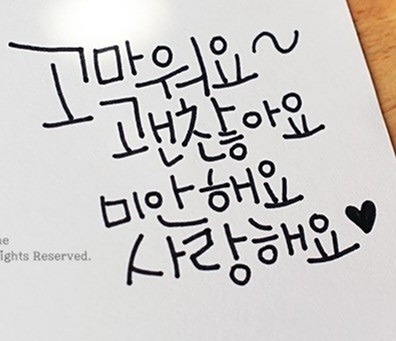 고마워요~
괜찮아요
미안해요
사랑해요♥
ights Reserved.